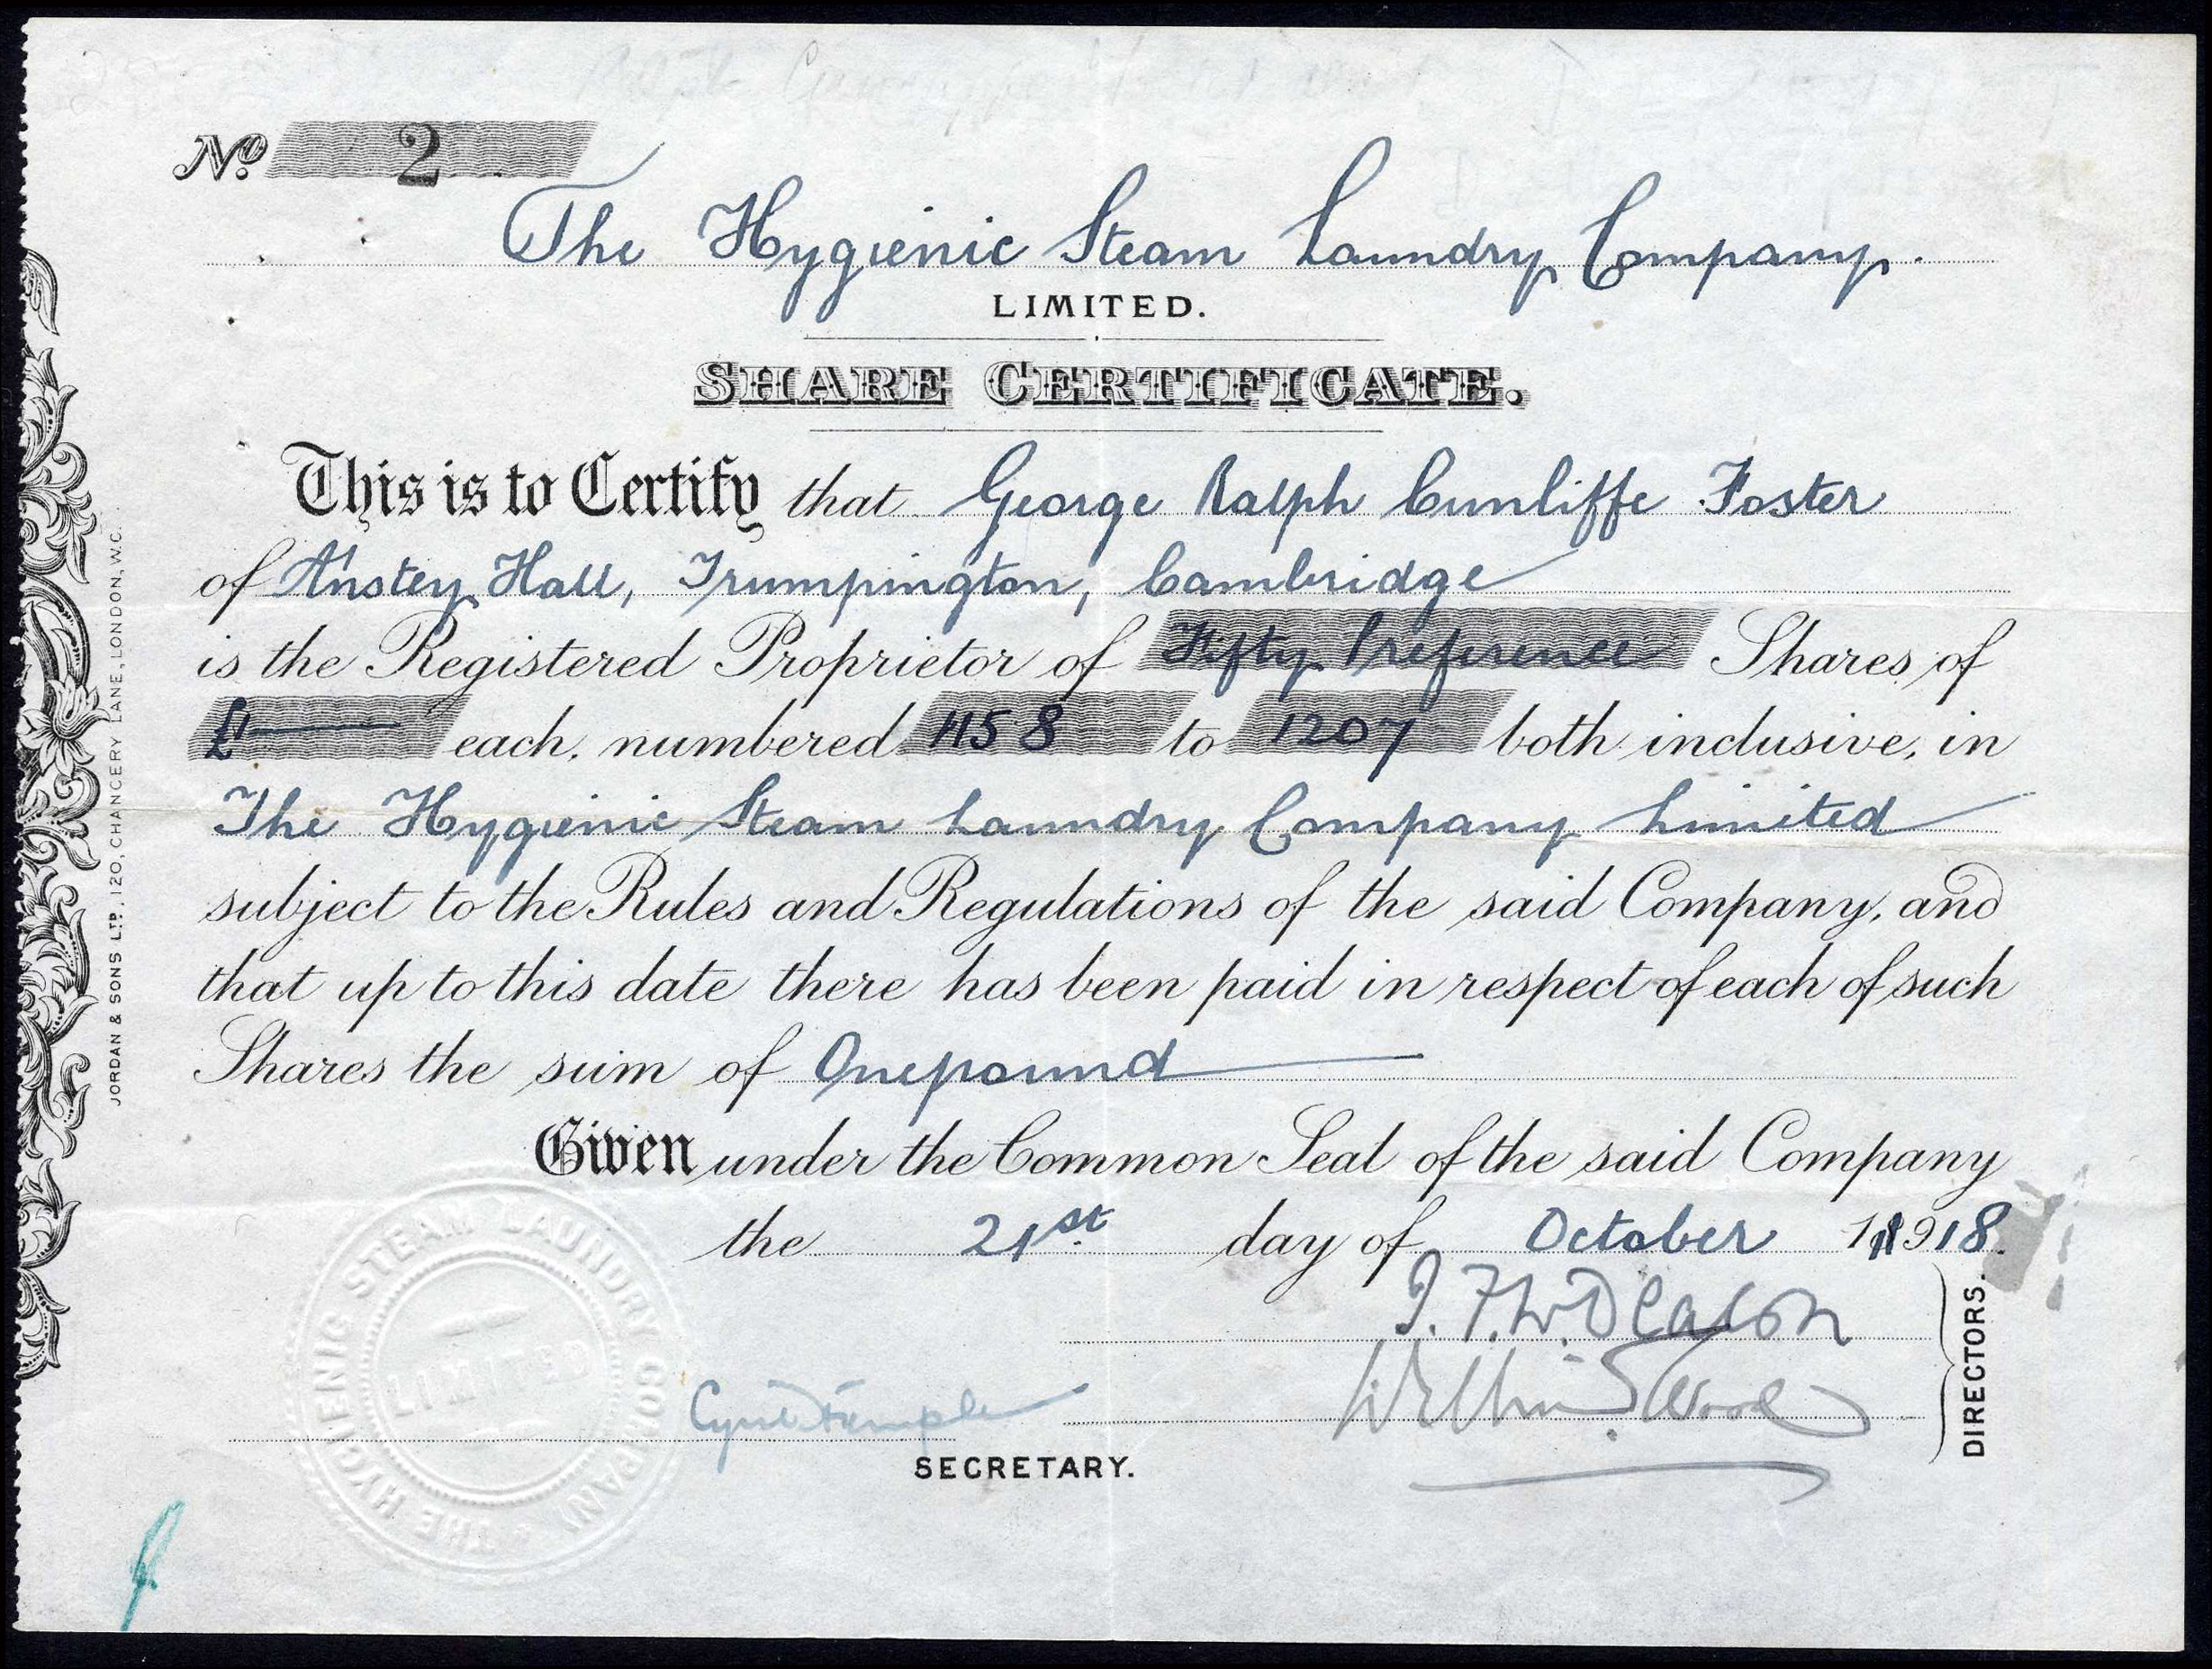 No. 2
The Hygienic Steam Laundry Company.
LIMITED.
SHARE CERTIFICATE.
This is to Certify that George Ralph Cunliffe Foster
of Anstey Hall, Trumpington, Cambridge
is the Registered Proprietor of Fifty Preference Shares of
£— each, numbered 1158 to 1207 both inclusive, in
The Hygienic Steam Laundry Company Limited
subject to the Rules and Regulations of the said Company, and
that up to this date there has been paid in respect of each of such
Shares the sum of One pound
Given under the Common Seal of the said Company
the 21st day of October 1918.
J. F. W. Deacon
William Wood
DIRECTORS.
Cyril Temple
SECRETARY.
THE HYGIENIC STEAM LAUNDRY COMPANY
LIMITED
JORDAN & SONS LTD., 120, CHANCERY LANE, LONDON, W.C.